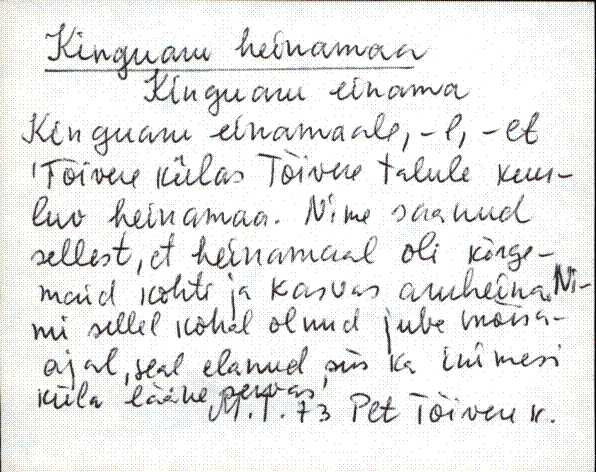 Kinguaru heinamaa
Kinguaru einama
Kinguaru einamaale, -l, -et
Tõivere külas Tõivere talule kuu-
luv heinamaa. Nime saanud
sellest, et heinamaal oli kõrge-
maid kohti ja kasvas aruheina. Ni-
mi sellel kohal olnud juba mõisa-
ajal, seal elanud siis ka inimesi
küla lääne servas,
M.T. 73 Pet Tõivere k.